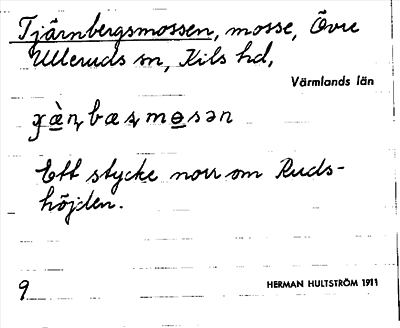 Tjärnbergsmossen, mosse, Övre
Ulleruds sn, Kils hd,
Värmlands län
Ett stycke norr om Ruds-
höjden.
9
HERMAN HULTSTRÖM 1911